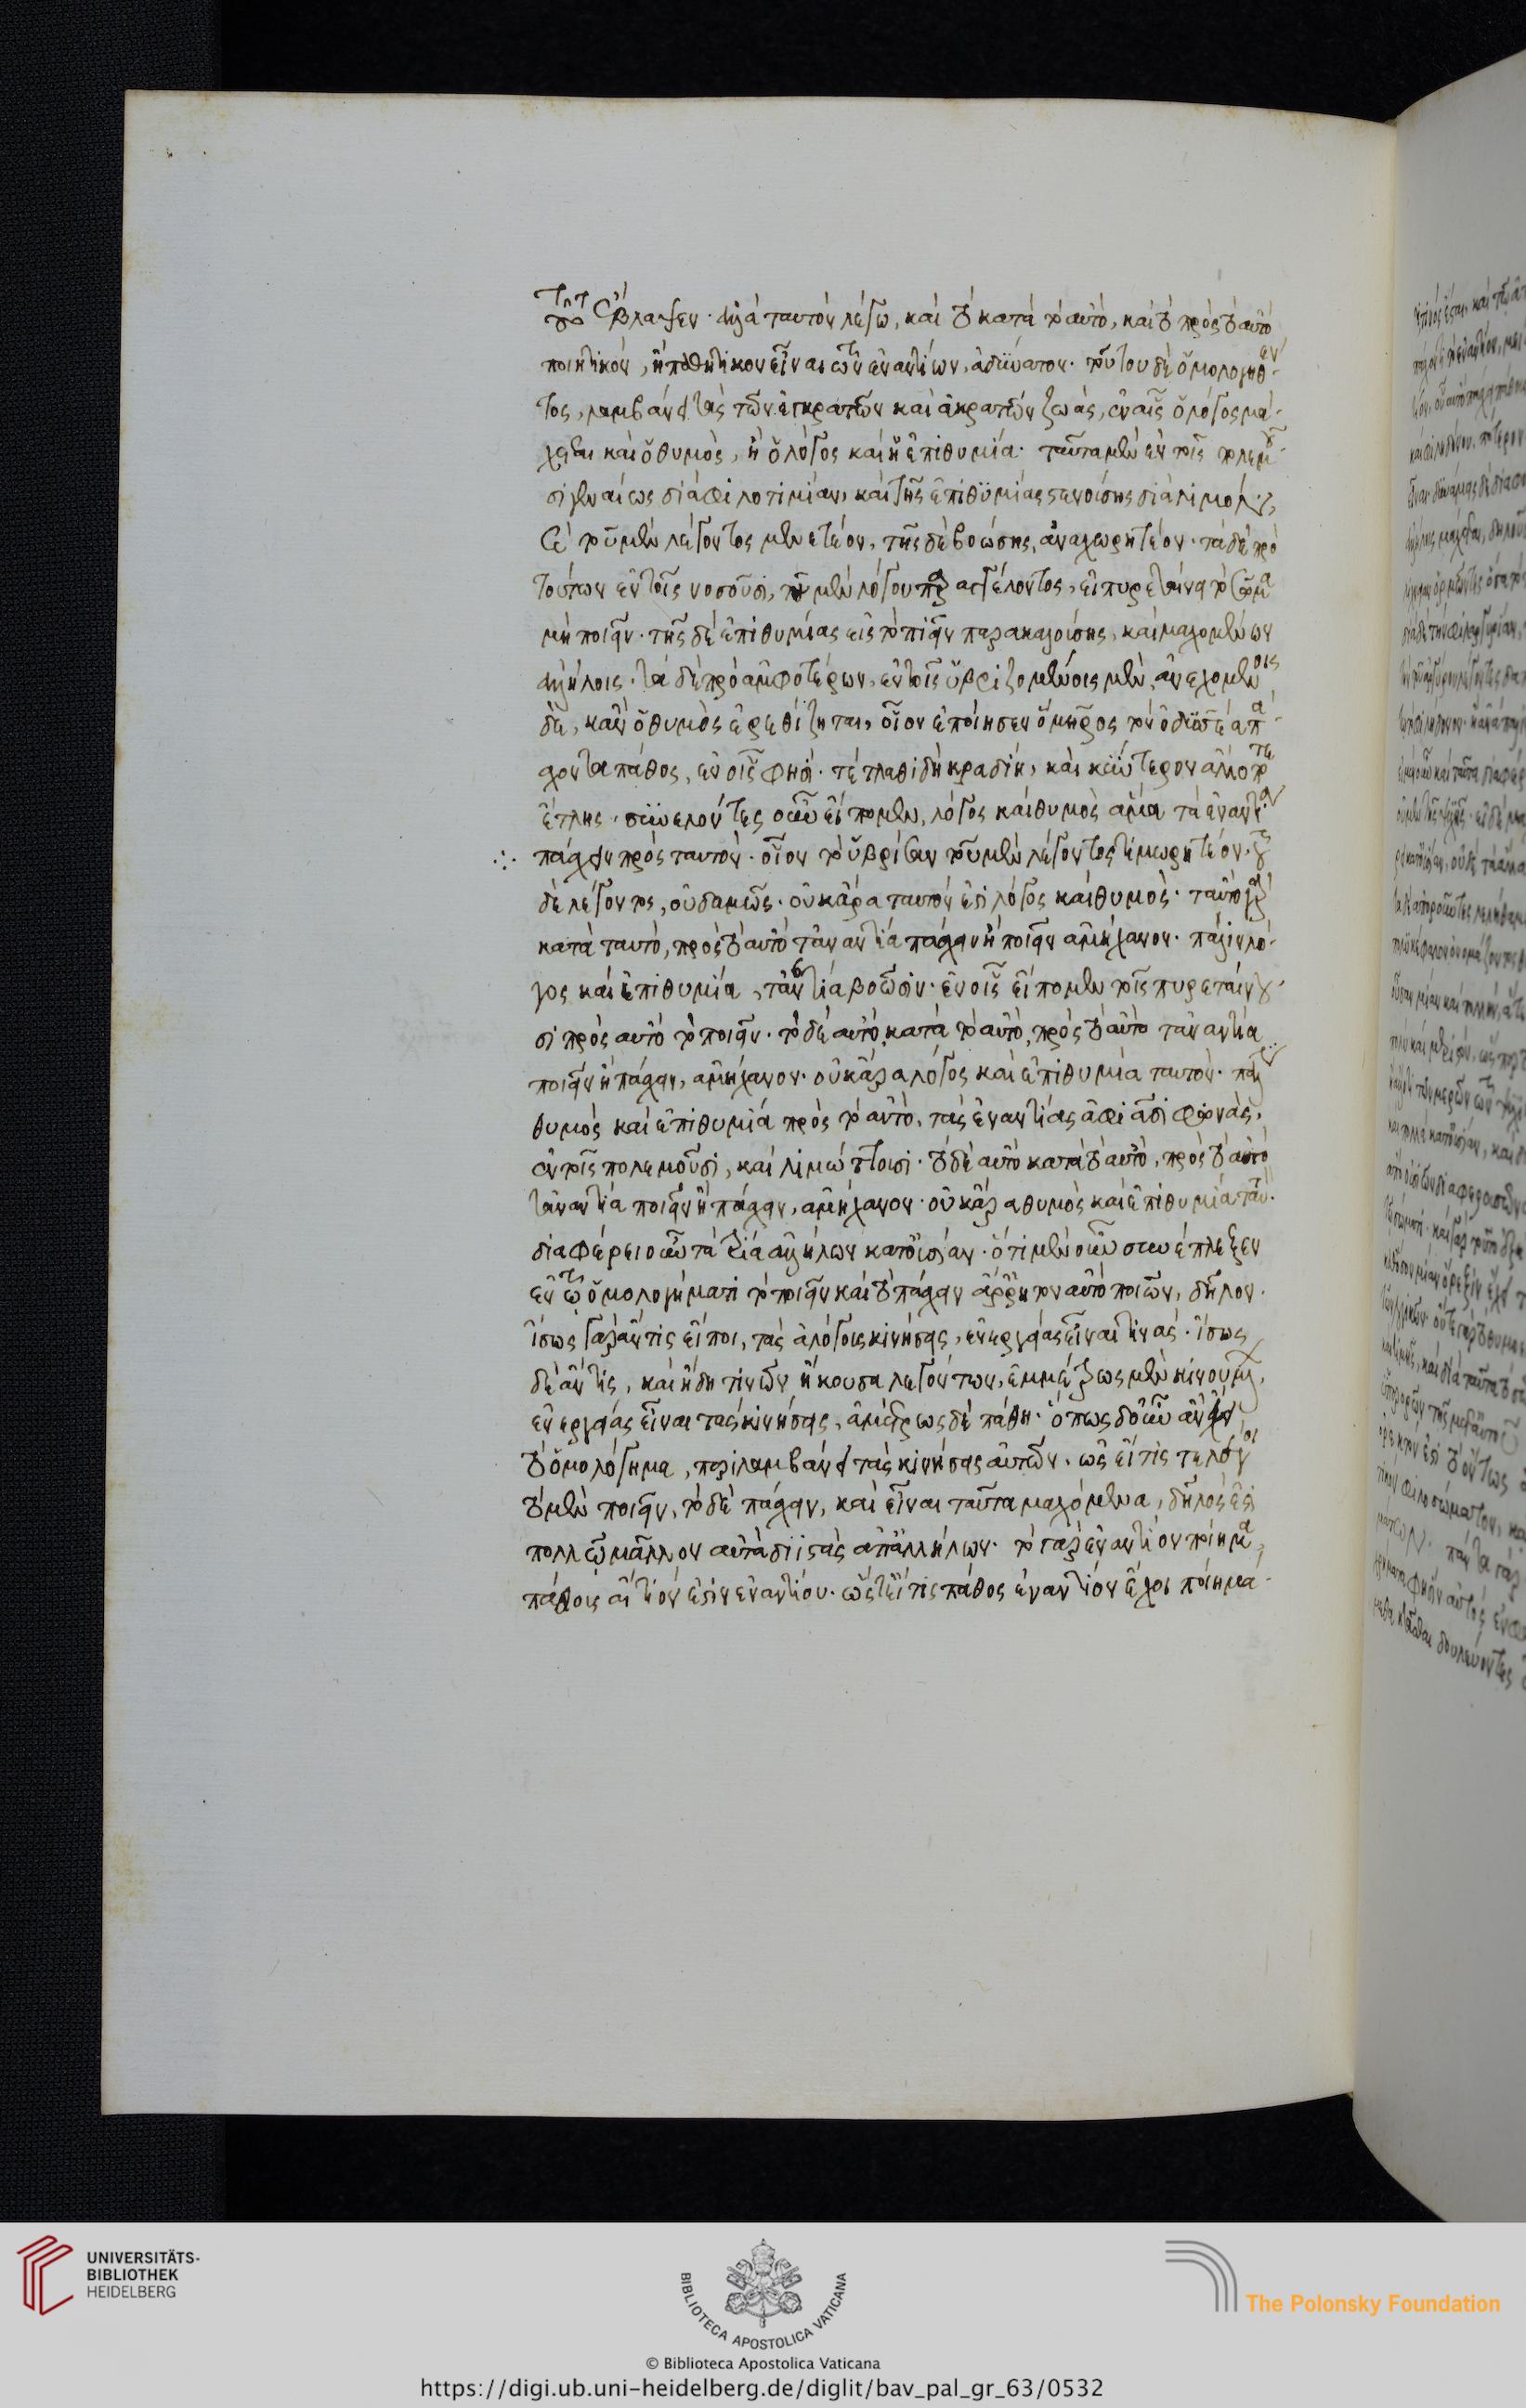 τοῦτο ἔβλαψεν. ἀλλὰ ταυτὸν λέγω, καὶ τὸ κατὰ τὸ αὐτὸ, καὶ τὸ πρὸς τὸ αὐτὸ
ποιητικὸν, ἢ παθητικὸν εἶναι τῶν ἐναντίων, ἀδύνατον. τούτου δὲ ὁμολογηθέν
τος, λαμβάνει τὰς τῶν ἐγκρατῶν καὶ ἀκρατῶν ζωὰς, ἐν αἷς ὁ λόγος μά
χεται καὶ ὁ θυμὸς, ἢ ὁ λόγος καὶ ἡ ἐπιθυμία. ταῦτα μὲν ἐν τοῖς πολεμοῦ
σι γενναίως διὰ φιλοτιμίαν, καὶ τῆς ἐπιθυμίας πεινώσης διὰ λιμόν,
τοῦ μὲν λέγοντος μενετέον, τῆς δὲ βοώσης, ἀναχωρητέον. τὰ δὲ πρὸ
τούτων ἐν τοῖς νοσοῦσι, τοῦ μὲν λόγου παραγγέλοντος, εἰ πυρεταίνει τὸ σῶμα
μὴ ποιεῖν. τῆς δὲ ἐπιθυμίας εἰς τὸ πιεῖν παρακαλούσης, καὶ μαχομένων
ἀλλήλοις. τὰ δὲ πρὸ ἀμφοτέρων, ἐν τοῖς ὑβριζομένοις μὲν, ἀνεχομένοις
δὲ, κἂν ὁ θυμὸς ἐρεθίζηται, οἷον ἐποίησεν ὅμηρος τὸν ὀδυσσέα πά
σχοντα πάθος, ἐν οἷς φησί. τέτλαθι δὴ κραδίη, καὶ κύντερον ἄλλο ποτε
ἔτλης. συνελόντες οὖν εἴπομεν, λόγος καὶ θυμὸς ἅμα τὰ ἐναντία
πάσχειν πρὸς ταυτὸν. οἷον τὸ ὑβρίσαν τοῦ μὲν λέγοντος τιμωρητέον. τοῦ
δὲ λέγοντος, οὐδαμῶς. οὐκ ἄρα ταυτόν ἐστι λόγος καὶ θυμὸς. ταὐτὸ γὰρ
κατὰ ταυτὸ, πρὸς τὸ αὐτὸ τἀναντία πάσχειν ἢ ποιεῖν ἀμήχανον. πάλιν λό
γος καὶ ἐπιθυμία, τἀναντία βοῶσιν. ἐν οἷς εἴπομεν τοῖς πυρεταίνου
σι πρὸς αὐτὸ τὸ ποιεῖν. τὸ δὲ αὐτὸ κατὰ τὸ αὐτὸ, πρὸς τὸ αὐτὸ τἀναντία
ποιεῖν ἢ πάσχειν, ἀμήχανον. οὐκ ἄρα λόγος καὶ ἐπιθυμία ταυτὸν. πάλιν
θυμὸς καὶ ἐπιθυμία πρὸς τὸ αὐτὸ, τὰς ἐναντίας ἀφιᾶσι φωνὰς,
ἐν τοῖς πολεμοῦσι, καὶ λιμώττουσι. τὸ δὲ αὐτὸ κατὰ τὸ αὐτὸ, πρὸς τὸ αὐτὸ
τἀναντία ποιεῖν ἢ πάσχειν, ἀμήχανον. οὐκ ἄρα θυμὸς καὶ ἐπιθυμία ταυ.
διαφέρει οὖν τὰ τρία ἀλλήλων κατ' οὐσίαν. ὅτι μὲν οὖν συνέπλεξεν
ἐν τῶ ὁμολογήματι τὸ ποιεῖν καὶ τὸ πάσχειν ἄρρητον αὐτὸ ποιῶν, δῆλον.
ἴσως γὰρ ἄν τις εἴποι, τὰς ἀλόγοις κινήσεις, ἐνεργείας εἶναι τινάς. ἴσως
δὲ ἄν τις, καὶ ἤδη τινῶν ἤκουσα λεγόντων, ἐμμέτρως μὲν κινουμένων
ἐνεργείας εἶναι τὰς κινήσεις, ἀμέτρως δὲ πάθη. ὅπως δ' οὖν ἂν ἔχοι
τὸ ὁμολόγημα, περιλαμβάνει τὰς κινήσεις αὐτῶν. ὡς εἴ τις
τὸ μὲν ποιεῖν, τὸ δὲ πάσχειν, καὶ εἶναι ταῦτα μαχόμενα, δῆλός ἐστι
πολλῶ μᾶλλον αὐτὰ διιστὰς ἀπ' ἀλλήλων. τὸ γὰρ ἐναντίον ποίημα,
πάθους αἴτιόν ἐστιν ἐναντίου. ὥστ' εἴ τις πάθος ἐναντίον ἔχοι ποίημα
UNIVERSITÄTS-
BIBLIOTHEK
HEIDELBERG
BIBLIOTECA APOSTOLICA VATICANA
The Polonsky Foundation
© Biblioteca Apostolica Vaticana
https://digi.ub.uni-heidelberg.de/diglit/bav_pal_gr_63/0532